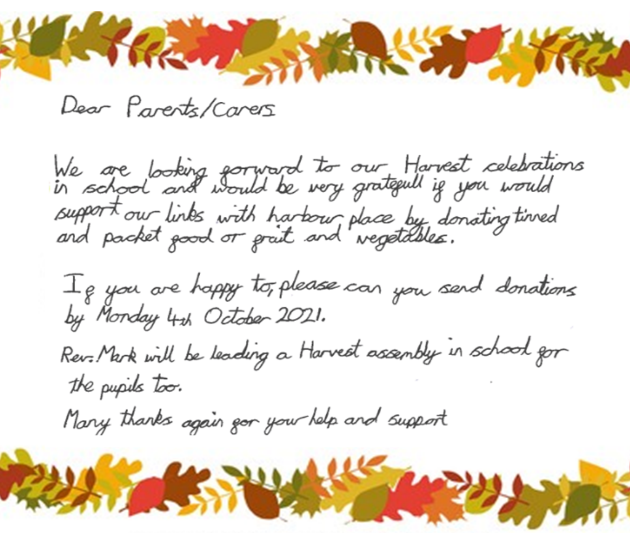 Dear Parents/Carers
We are looking forward to our Harvest celebrations
in school and would be very gratefull if you would
support our links with harbour place by donating tinned
and packet good or fruit and vegetables.
If you are happy to, please can you send donations
by Monday 4th October 2021.
Rev. Mark will be leading a Harvest assembly in school for
the pupils too.
Many thanks again for your help and support